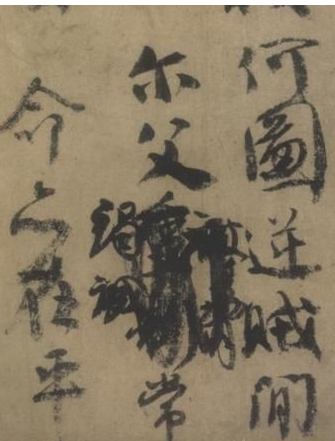 何圖逆賊間
尔父竭誠常
命亦在平